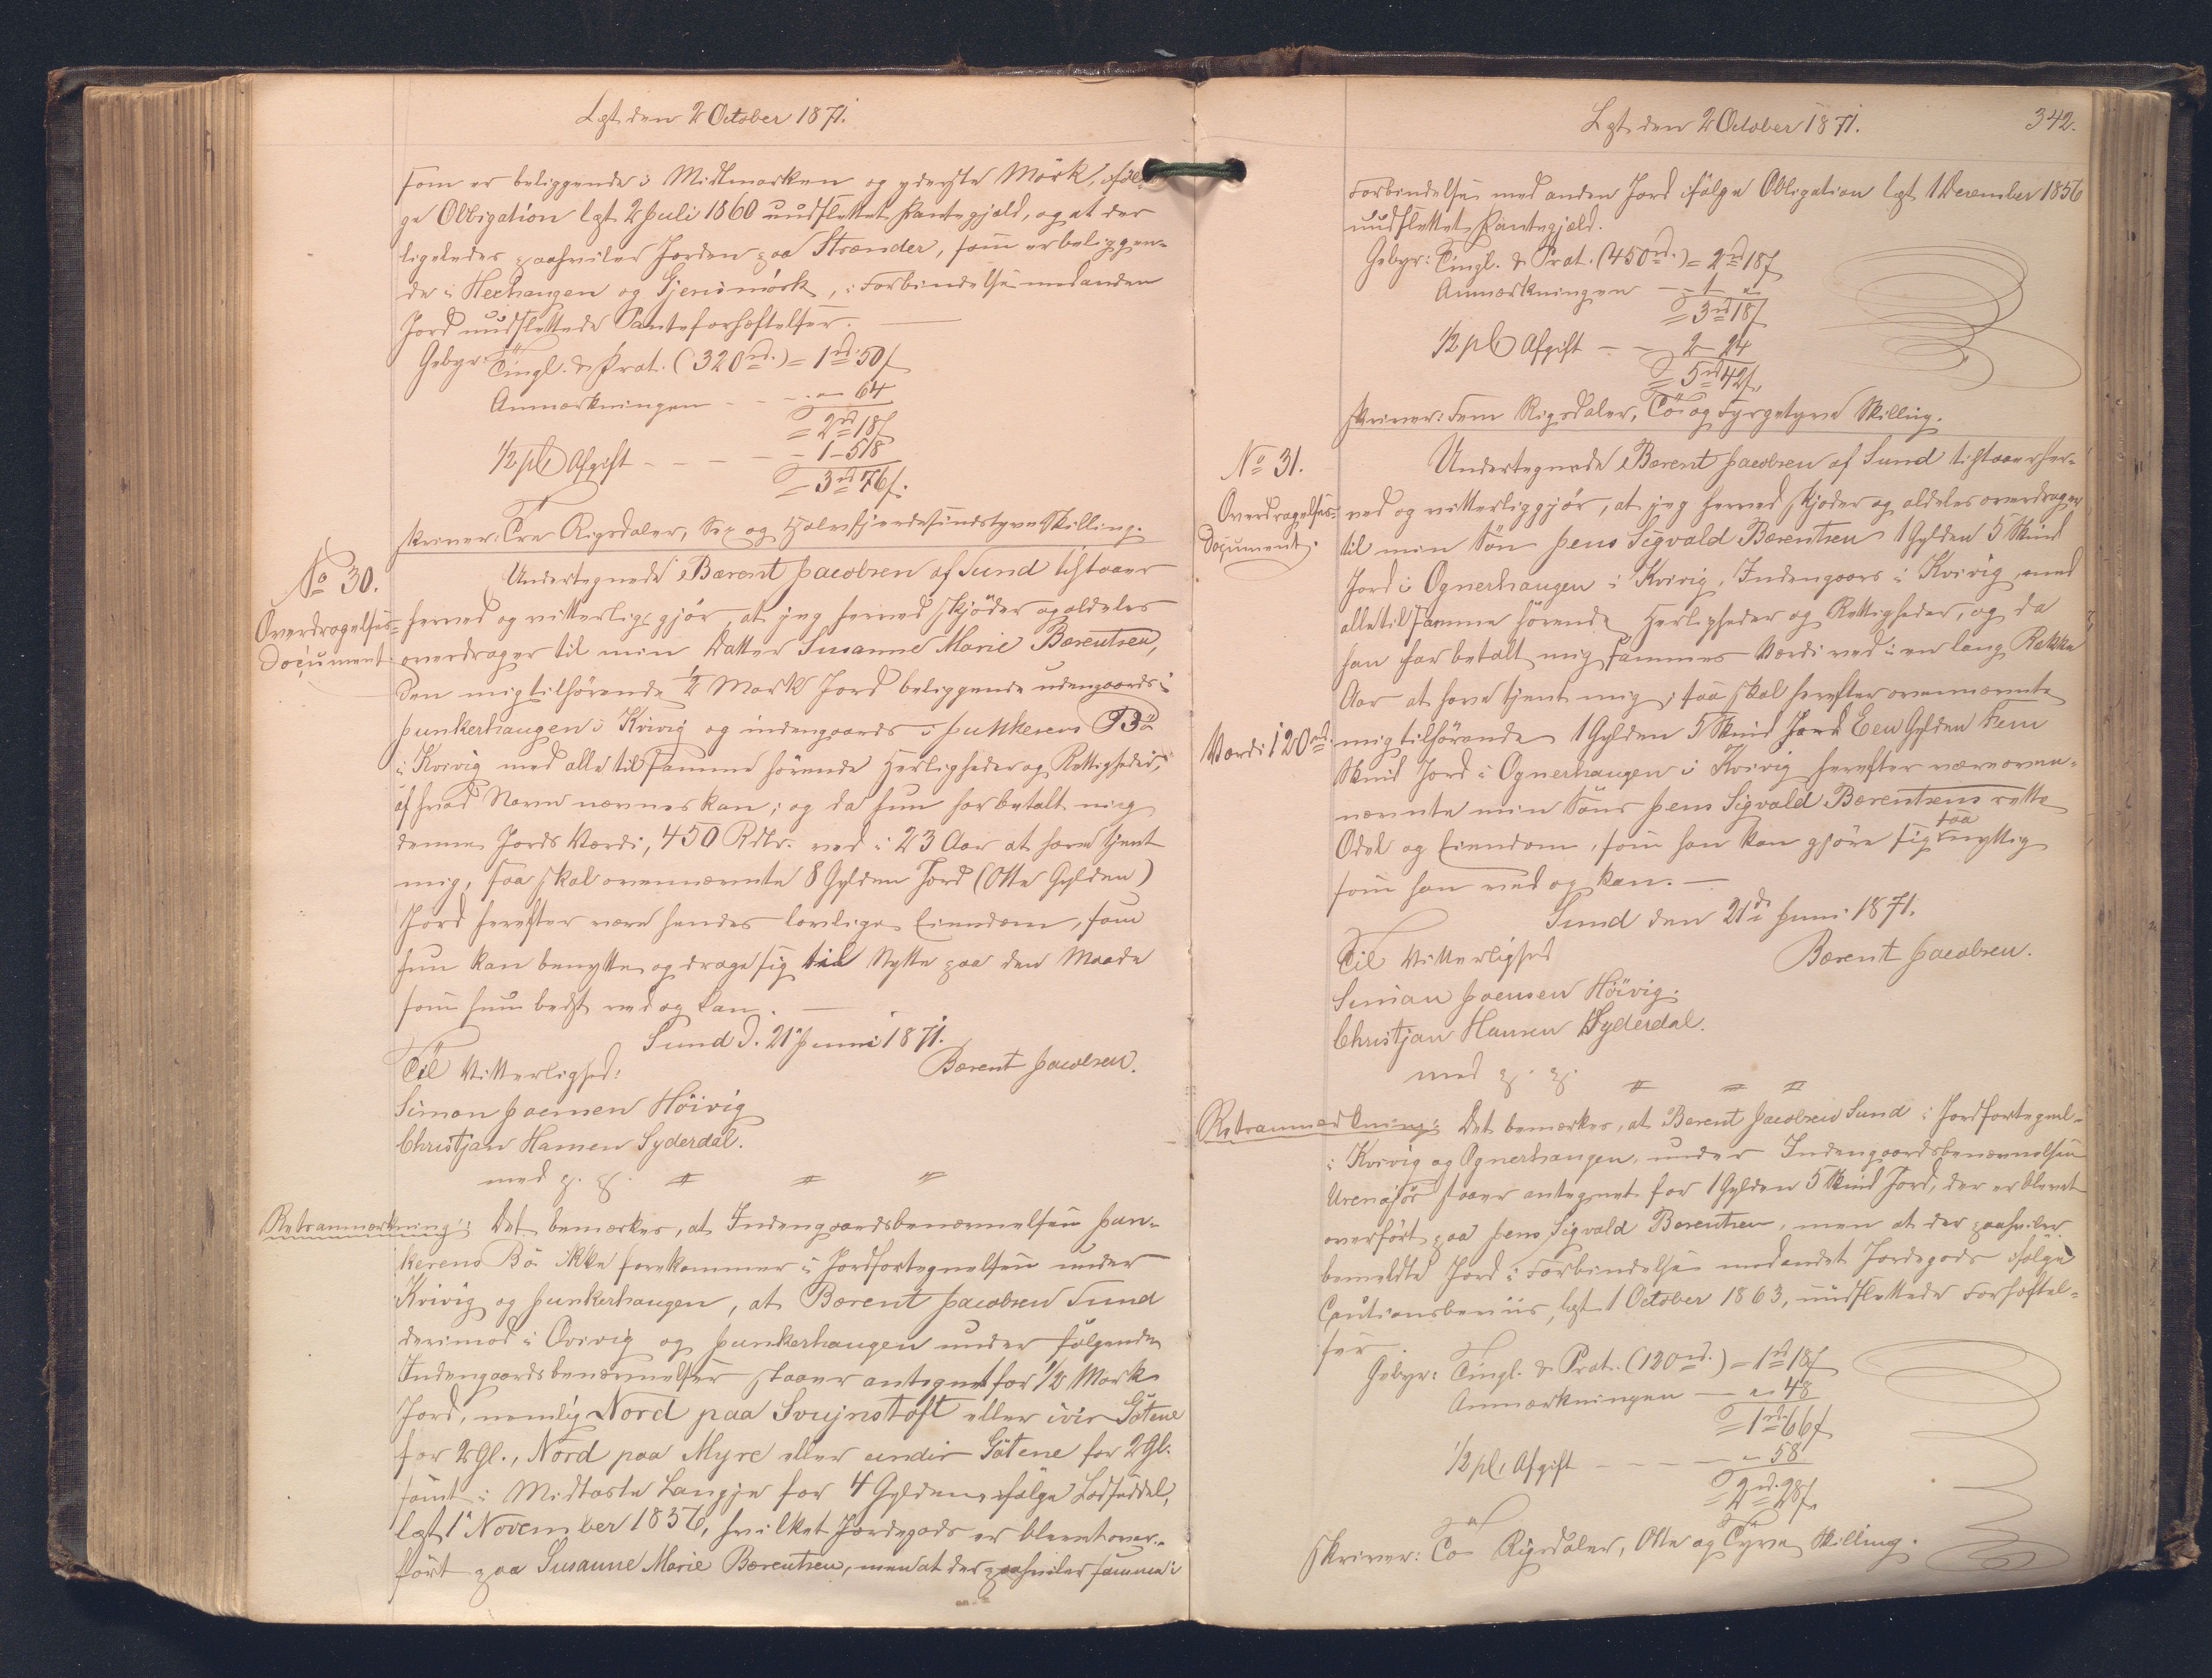 Lgt. den 2 October 1871.
som er beliggende i Midtmarken og yderste Mörk, iföl-
ge Obligation lgt. 2 Juli 1860 uudslettet Pantegjæld, og at der
ligeledes paahviler Jorden paa Strænder, som er beliggen-
de i Herhaugen og Gjerismörk, i Forbindelse med anden
Jord uudslettede Panteforhæftelser.
Gebyr: Tingl. & Prot. (320 rd.) = 1 rd. 50 s
Anmærkningen - - - " 64
= 2 rd 18 s
1/2 pCt Afgift - - - - 1 - 58
= 3 rd 76 s.
skriver: Tre Rigsdaler, Sex og halvfjerdesindstyve Skilling.
No 30.
Overdragelses-
Document
Undertegnede Bærent Jacobsen af Sund tilstaaer
herved og vitterlig gjör, at jeg herved skjöder og aldeles
overdrager til min Datter Susanne Marie Bærentsen,
den mig tilhörende 1/2 Mark Jord beliggende udengaards i
Junkerhaugen i Kvivig og indengaards i Junkerens Bö
i Kvivig med alle til samme hörende Herligheder og Rettigheder,
af hvad Navn nævnes kan; og da hun har betalt mig
denne Jords Værdi, 450 Rdlr. ved i 23 Aar at have tjent
mig, saa skal ovennævnte 8 Gylden Jord (Otte Gylden)
Jord herefter være hendes lovlige Eiendom, som
hun kan benytte og drage sig til Nytte paa den Maade
som hun bedst ved og kan.
Sund d. 21 Juni 1871.
Til Vitterlighed: Bærent Jacobsen.
Simon Joensen Höivig
Christjan Hansen Syderdal.
med
Retsanmærkning: Det bemærkes, at Indengaardsbenævnelsen Jun-
kerens Bö ikke forekommer i Jordfortegnelsen under
Kvivig og Junkerhaugen, at Bærent Jacobsen Sund
derimod i Qvivig og Junkerhaugen under fölgende
Indengaardsbenævnelser staaer antegnet for 1/2 Mark
Jord, nemlig Nord paa Svujnstoft eller ivir Götene
for 2 Gl., Nord paa Myre eller undir Götene for 2 Gl.
samt i Midtaste Langje for 4 Gylden, ifölge Lodseddel,
lgt. 1 November 1856, hvilket Jordegods er blevet over-
fört paa Susanne Marie Bærentsen, men at der paahviler samme i
Lgt. den 2 October 1871.
342.
Forbindelse med anden Jord ifölge Obligation lgt. 1 December 1856
uudslettet Pantegjæld.
Gebyr: Tingl. & Prot. (450 rd.) = 2 rd 18 s
Anmærkningen - - 1 - "
= 3 rd 18 s
1/2 pCt Afgift - - 2 - 24
= 5 rd 42 s.
skriver: Fem Rigsdaler, To og Fyrgetyve Skilling.
No 31.
Overdragelses-
Document.
Undertegnede Bærent Jacobsen af Sund tilstaaer her-
ved og vitterliggjör, at jeg herved skjöder og aldeles overdrager
til min Sön Jens Sigvald Bærentsen 1 Gylden 5 Skind
Jord i Ognerhaugen i Kvivig, Indengaars i Kvivig, med
alle til samme hörende Herligheder og Rettigheder, og da
han har betalt mig sammes Værdi ved i en lang Række
Aar at have tjent mig, saa skal herefter ovennævnte
Værdi 120 rd.
mig tilhörende 1 Gylden 5 Skind Jord Een Gylden Fem
Skind Jord i Ognerhaugen i Kvivig herefter være oven-
nævnte min Söns Jens Sigvald Bærentsens rette
Odel og Eiendom, som han kan gjöre sig saa nyttig
som han ved og kan.
Sund den 21de Juni 1871.
Til Vitterlighed Bærent Jacobsen.
Simon Joensen Höivig.
Christjan Hansen Syderdal.
med
Retsanmærkning: Det bemærkes, at Bærent Jacobsen Sund i Jordfortegnel-
i Kvivig og Ognerhaugen, under Indengaardsbenævnelsen
staaer antegnet for 1 Gylden 5 Skind Jord, der er blevet
overfört paa Jens Sigvald Bærentsen, men at der paahviler
bemeldte Jord i Forbindelse med andet Jordegods ifölge
Cautionsbeviis, lgt. 1 October 1863, uudslettede Forhæftel-
ser.
Gebyr: Tingl. & Prot. (120 rd.) = 1 rd 18 s
Anmærkningen - " 48
= 1 rd. 66 s
1/2 pCt. Afgift - - - - " 58
= 2 rd. 28 s.
skriver: To Rigsdaler, Otte og Tyve Skilling.